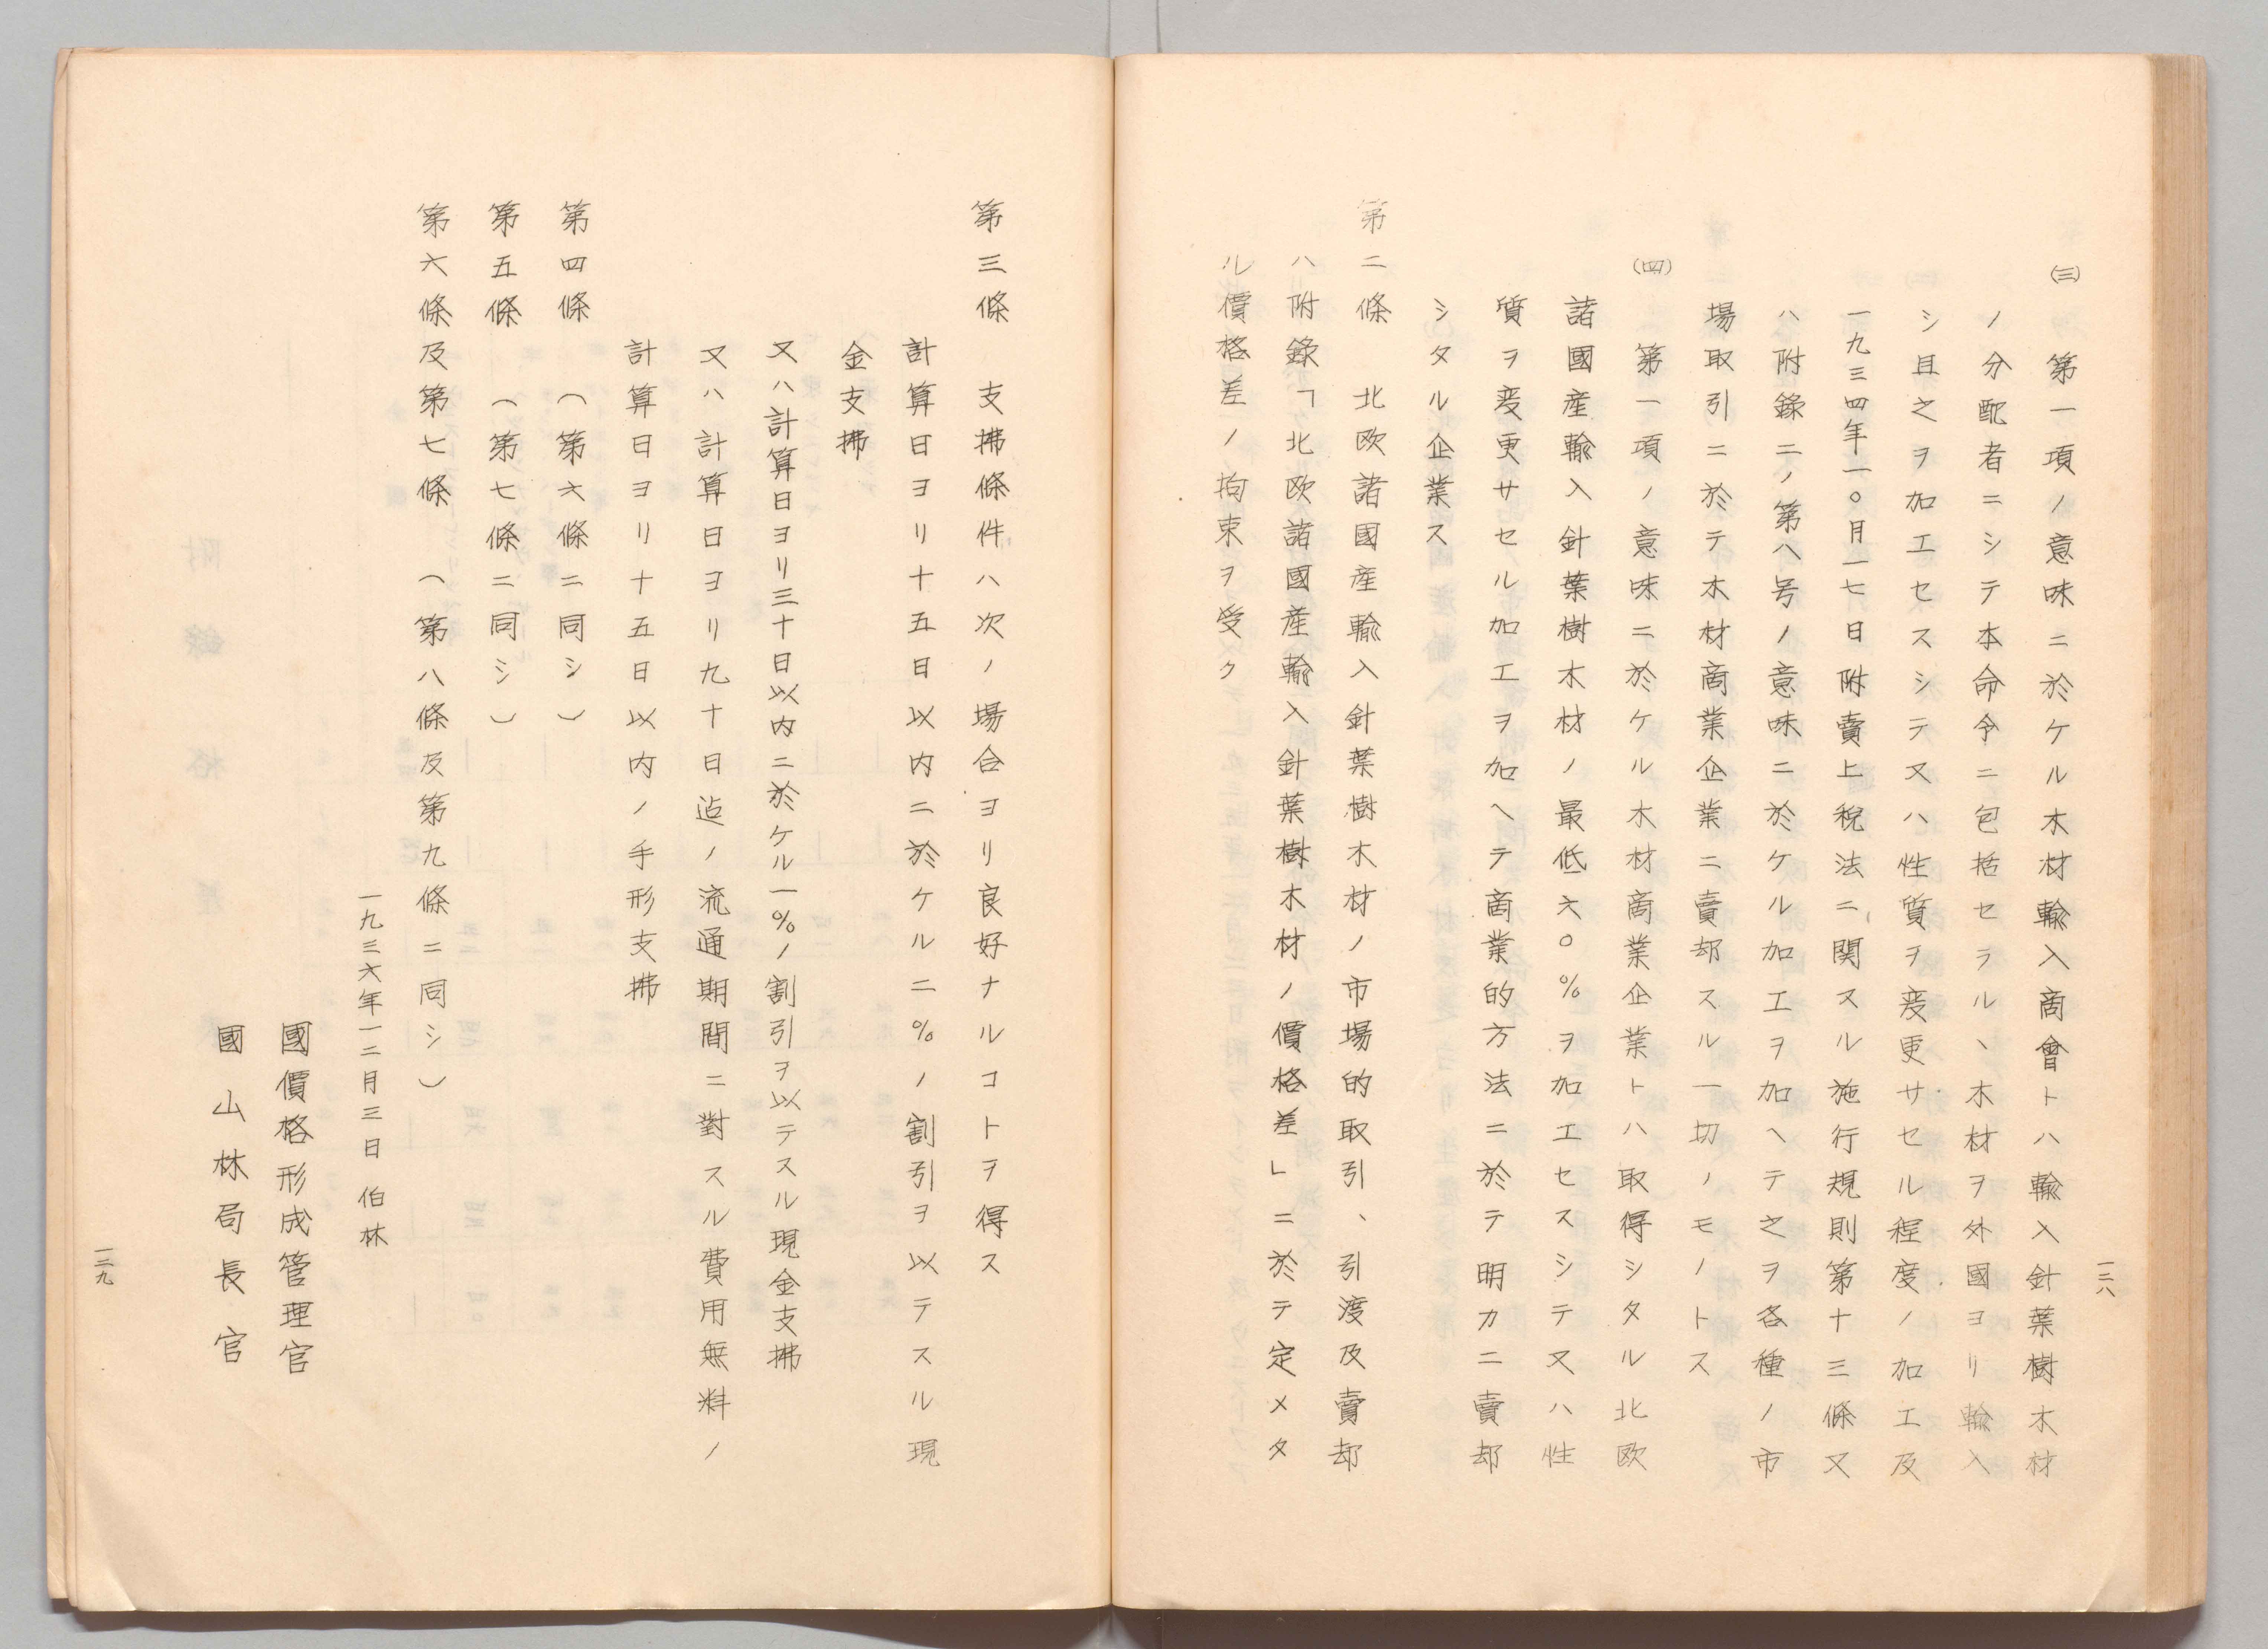 (三)　第一項ノ意味ニ於ケル木材輸入商會トハ輸入針葉樹木材
ノ分配者ニシテ本命令ニ包括セラルヽ木材ヲ外國ヨリ輸入
シ且之ヲ加工セスシテ又ハ性質ヲ変更サセル程度ノ加工及
一九三四年一〇月一七日附賣上税法ニ関スル施行規則第十三條又
ハ附錄二ノ第八号ノ意味ニ於ケル加工ヲ加ヘテ之ヲ各種ノ市
場取引ニ於テ木材商業企業ニ賣却スル一切ノモノトス
(四)　第一項ノ意味ニ於ケル木材商業企業トハ取得シタル北欧
諸國産輸入針葉樹木材ノ最低六〇％ヲ加工セスシテ又ハ性
質ヲ変更サセル加工ヲ加ヘテ商業的方法ニ於テ明カニ賣却
シタル企業ス
第二條　北欧諸國産輸入針葉樹木材ノ市場的取引、引渡及賣却
ハ附錄「北欧諸國産輸入針葉樹木材ノ價格差」ニ於テ定メタ
ル價格差ノ拘束ヲ受ク
一二八
第三條　支拂條件ハ次ノ場合ヨリ良好ナルコトヲ得ス
計算日ヨリ十五日以内ニ於ケル二％ノ割引ヲ以テスル現
金支拂
又ハ計算日ヨリ三十日以内ニ於ケル一％ノ割引ヲ以テスル現金支拂
又ハ計算日ヨリ九十日迠ノ流通期間ニ對スル費用無料ノ
計算日ヨリ十五日以内ノ手形支拂
第四條　（第六條ニ同シ）
第五條　（第七條ニ同シ）
第六條及第七條　（第八條及第九條ニ同シ）
一九三六年一二月三日　伯林
國價格形成管理官
國山林局長官
一二九